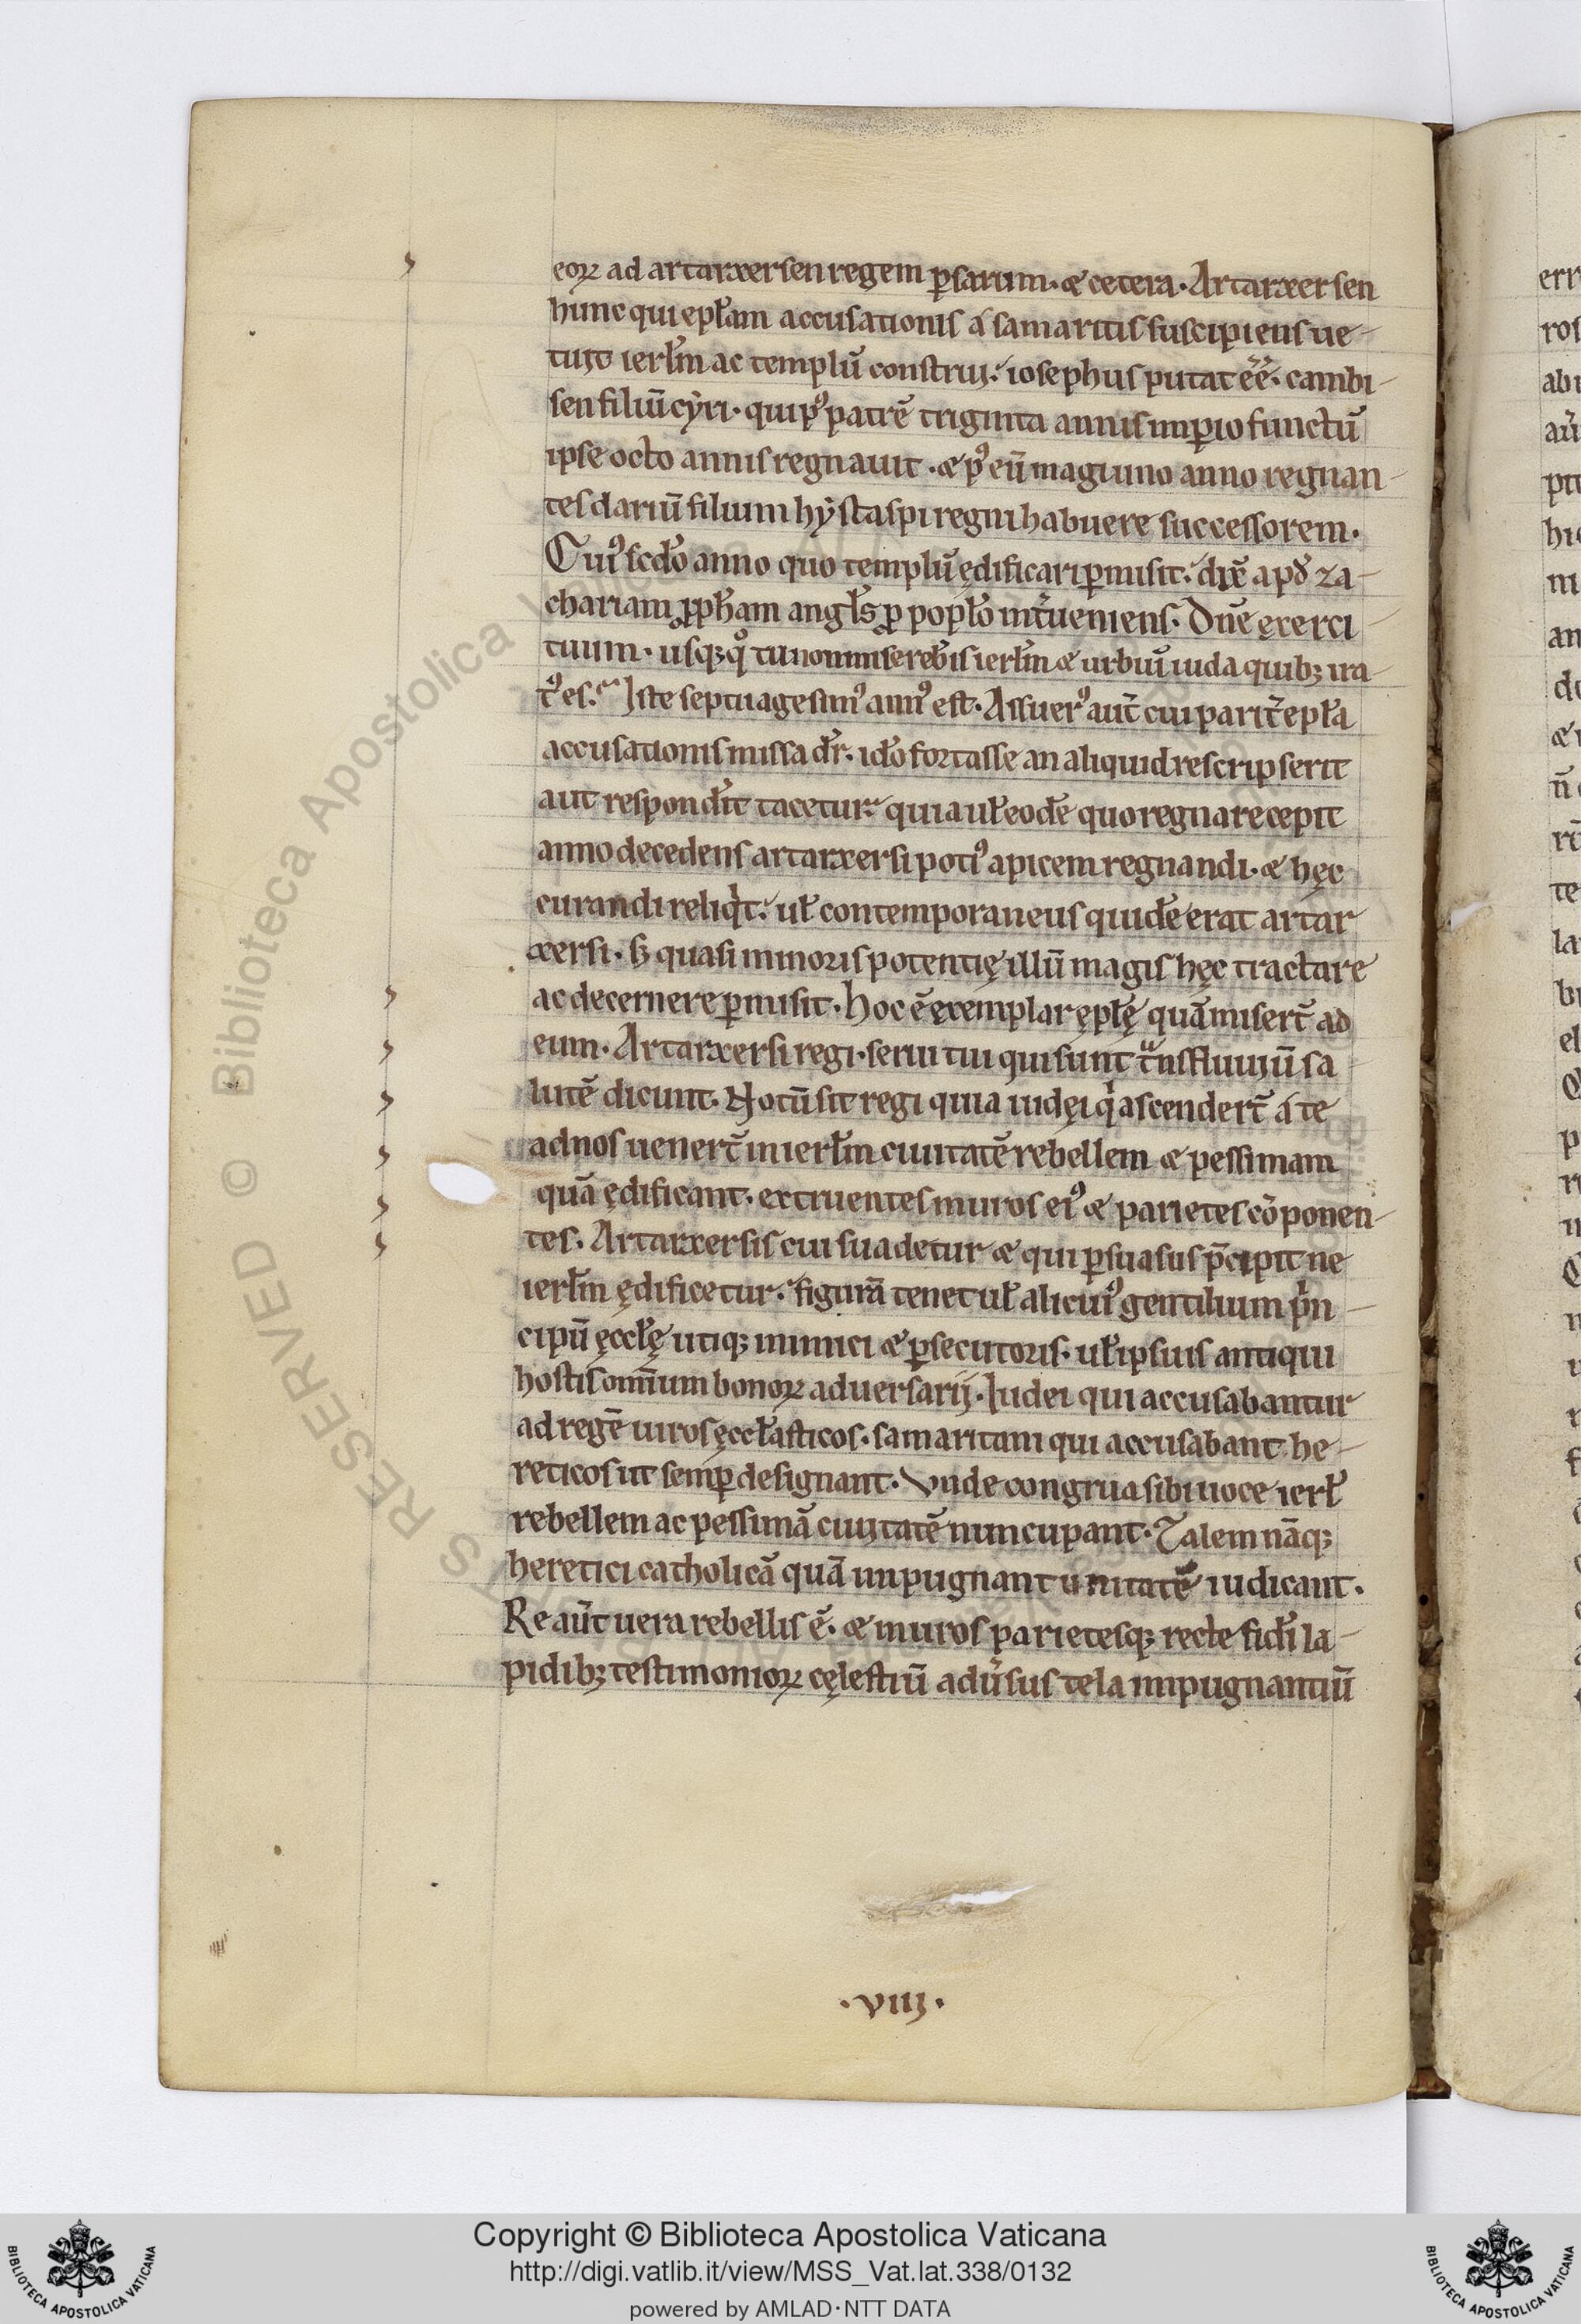 eoꝝ ad artarxersen regem ꝑsarum. & cetera. Artarxersen
hunc qui epłam accusationis á samaritis suscipiens ue-
tuit ierłm ac templū construi. iosephus putat ēē. cambi-
sen filiū cyri. qui pꝰ patrē triginta annis imꝑio functū
ipse octo annis regnauit. & pꝰ eū magi uno anno regnan-
tes dariū filium hystaspi regni habuere successorem.
Cuiꝰ scd̓o anno quo templū ędificari ꝑmisit. dix̄ apd̓ za-
chariam ꝓph̄am angl̄s ꝓ popl̓o int̓ueniens. Dn̄e exerci-
tuum. usqꝫ q̊ tu non misereb̓is ierłm & urbiū iuda quibꝫ ira-
tꝰ es. Iste septuagesimꝰ annꝰ est. Assuerꝰ aut̄ cui parit̓ epła
accusationis missa dr̄. id̓o fortasse an aliquid rescripserit
aut respond̓it tacetur. quia uł eodē quo regna recepit
anno decedens artarxersi potiꝰ apicem regnandi. & hęc
curandi reliq̇t. uł contemporaneus quidē erat artar
xersi. sꝫ quasi minoris potentię illū magis hęc tractare
ac decernere ꝑmisit. Hoc ē exemplar ępłę quā misert̄ ad
eum. Artarxersi regi. serui tui qui sunt tͣns fluuiū sa-
lutē dicunt. Notū sit regi quia iudęi q̇ ascendert̄ á te
ad nos uenert̄ in ierłm ciuitatē rebellem & pessimam
quā ędificant. extruentes muros eiꝰ & parietes cōponen-
tes. Artarxersis cui suadetur & qui ꝑsuasus p̄cipit ne
ierłm ędificetur. figurā tenet uł alicuiꝰ gentilium pͥn-
cipū ęccłę utiqꝫ inimici & ꝑsecutoris. uł ipsius antiqui
hostis omīum bonoꝝ aduersarij. Iudei qui accusabantur
ad regē uiros ęccłasticos. samaritani qui accusabant he-
reticos ut semꝑ designant. Vnde congrua sibi uoce ierł
rebellem ac pessimā ciuitatē nuncupant. Talem nāqꝫ
heretici catholicā quā impugnant unitatē iudicant.
Re aut̄ uera rebellis ē. & muros parietesqꝫ recte fid̓i la-
pidibꝫ testimonioꝝ cęlestiū adu̓sus tela impugnantiū
.viij.
Biblioteca Apostolica Vaticana
RESERVED © Biblioteca Apostolica Vaticana
Copyright © Biblioteca Apostolica Vaticana
http://digi.vatlib.it/view/MSS_Vat.lat.338/0132
powered by AMLAD·NTT DATA
BIBLIOTECA APOSTOLICA VATICANA
BIBLIOTECA APOSTOLICA VATICANA